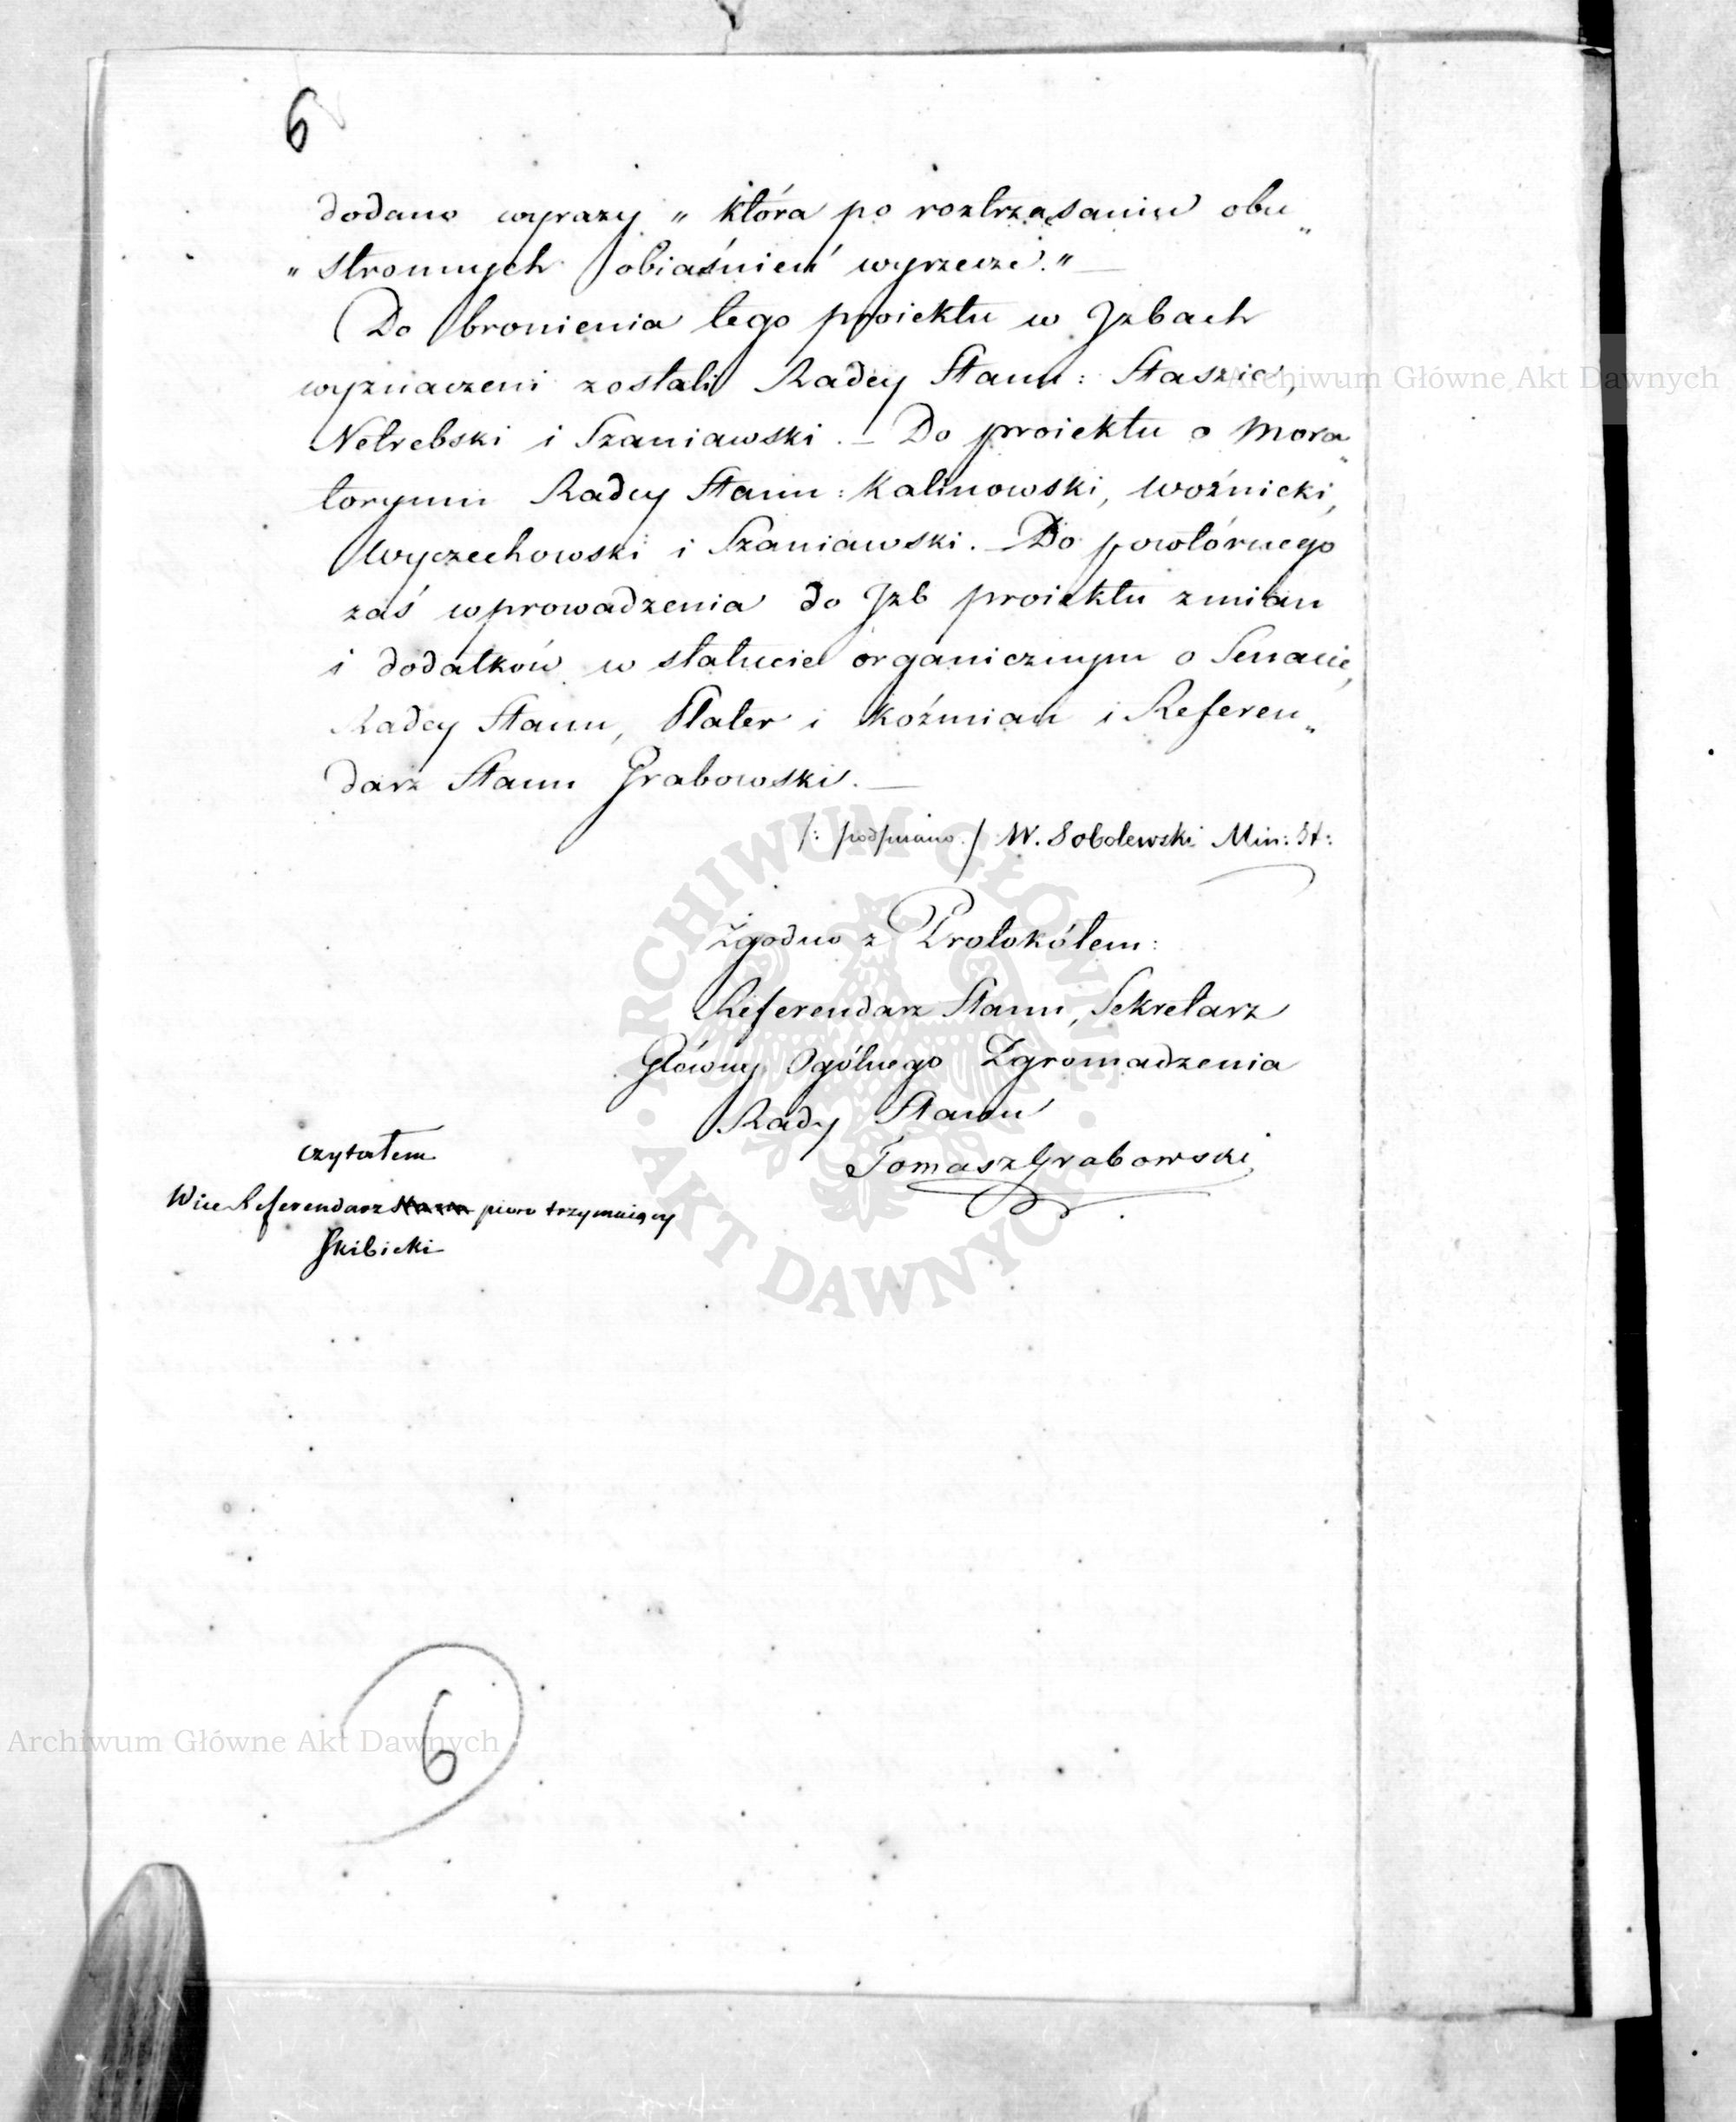 6
dodano wyrazy „ która po roztrząsaniu obu„
„ stronnych obiaśnień wyrzecze.“ —
Do bronienia tego proiektu w Jzbach
wyznaczeni zostali Radcy Stanu: Staszic,
Netrebski i Szaniawski. — Do proiektu o Mora„
toryum Radcy Stanu: Kalinowski, Woźnicki,
Wyczechowski i Szaniawski. — Do powtórnego
zaś wprowadzenia do Jzb proiektu zmian
i dodatków w statucie organicznym o Senacie,
Radcy Stanu, Plater i Koźmian i Referen„
darz Stanu Grabowski. —
/: podpisano :/ W. Sobolewski Min: St:
Zgodno z Protokółem:
Referendarz Stanu, Sekretarz
Główny Ogólnego Zgromadzenia
Rady Stanu
Tomasz Grabowski
czytałem
Wice Referendarz Stanu pioro trzymaiący
Skibicki
6
Archiwum Główne Akt Dawnych
Archiwum Główne Akt Dawnych
ARCHIWUM GŁÓWNE • AKT DAWNYCH •